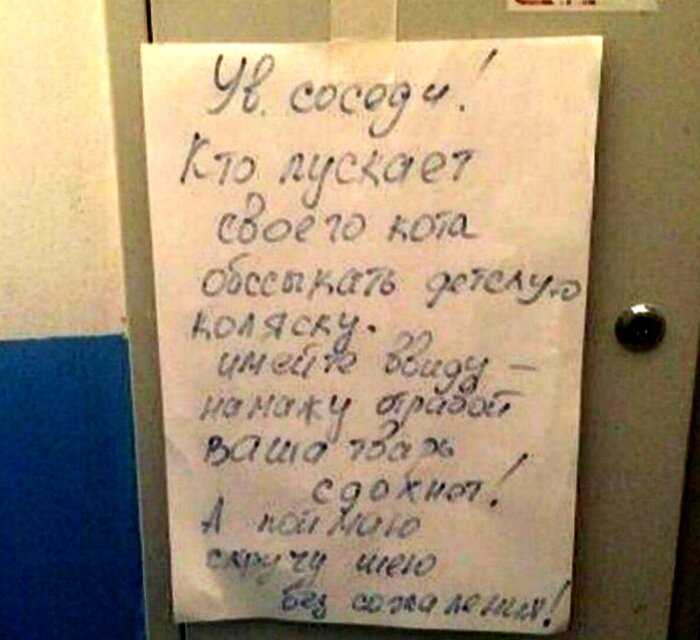 Ув. соседи!
Кто пускает
своего кота
обссыкать детскую
коляску.
имейте ввиду -
намажу отравой
ваша тварь
сдохнет!
А поймаю
скручу шею
без сожаления!